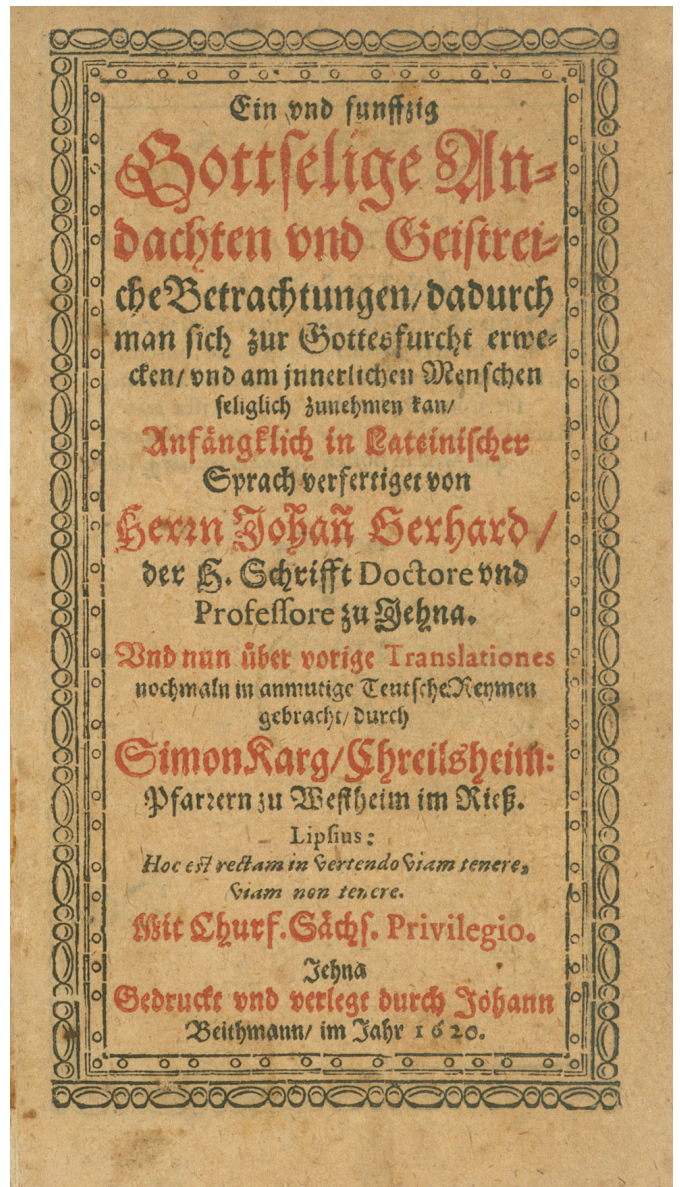 Ein vnd funffzig
Gottſelige An⸗
dachten vnd Geiſtrei⸗
che Betrachtungen/ dadurch
man ſich zur Gottesfurcht erwe⸗
cken/ vnd am jnnerlichen Menſchen
ſeliglich zunehmen kan/
Anfängklich in Lateiniſcher
Sprach verfertiget von
Herꝛn Johañ Gerhard/
der H. Schrifft Doctore vnd
Profeſſore zu Jehna.
Vnd nun über vorige Translationes
nochmaln in anmutige Teutſche Reymen
gebracht/ durch
Simon Karg/ Chreilsheim:
Pfarꝛern zu Weſtheim im Rieß.
Lipſius:
Hoc eſt rectam in vertendo viam tenere,
viam non tenere.
Mit Churf. Sächſ. Privilegio.
Jehna
Gedruckt vnd verlegt durch Johann
Beithmann/ im Jahr 1620.